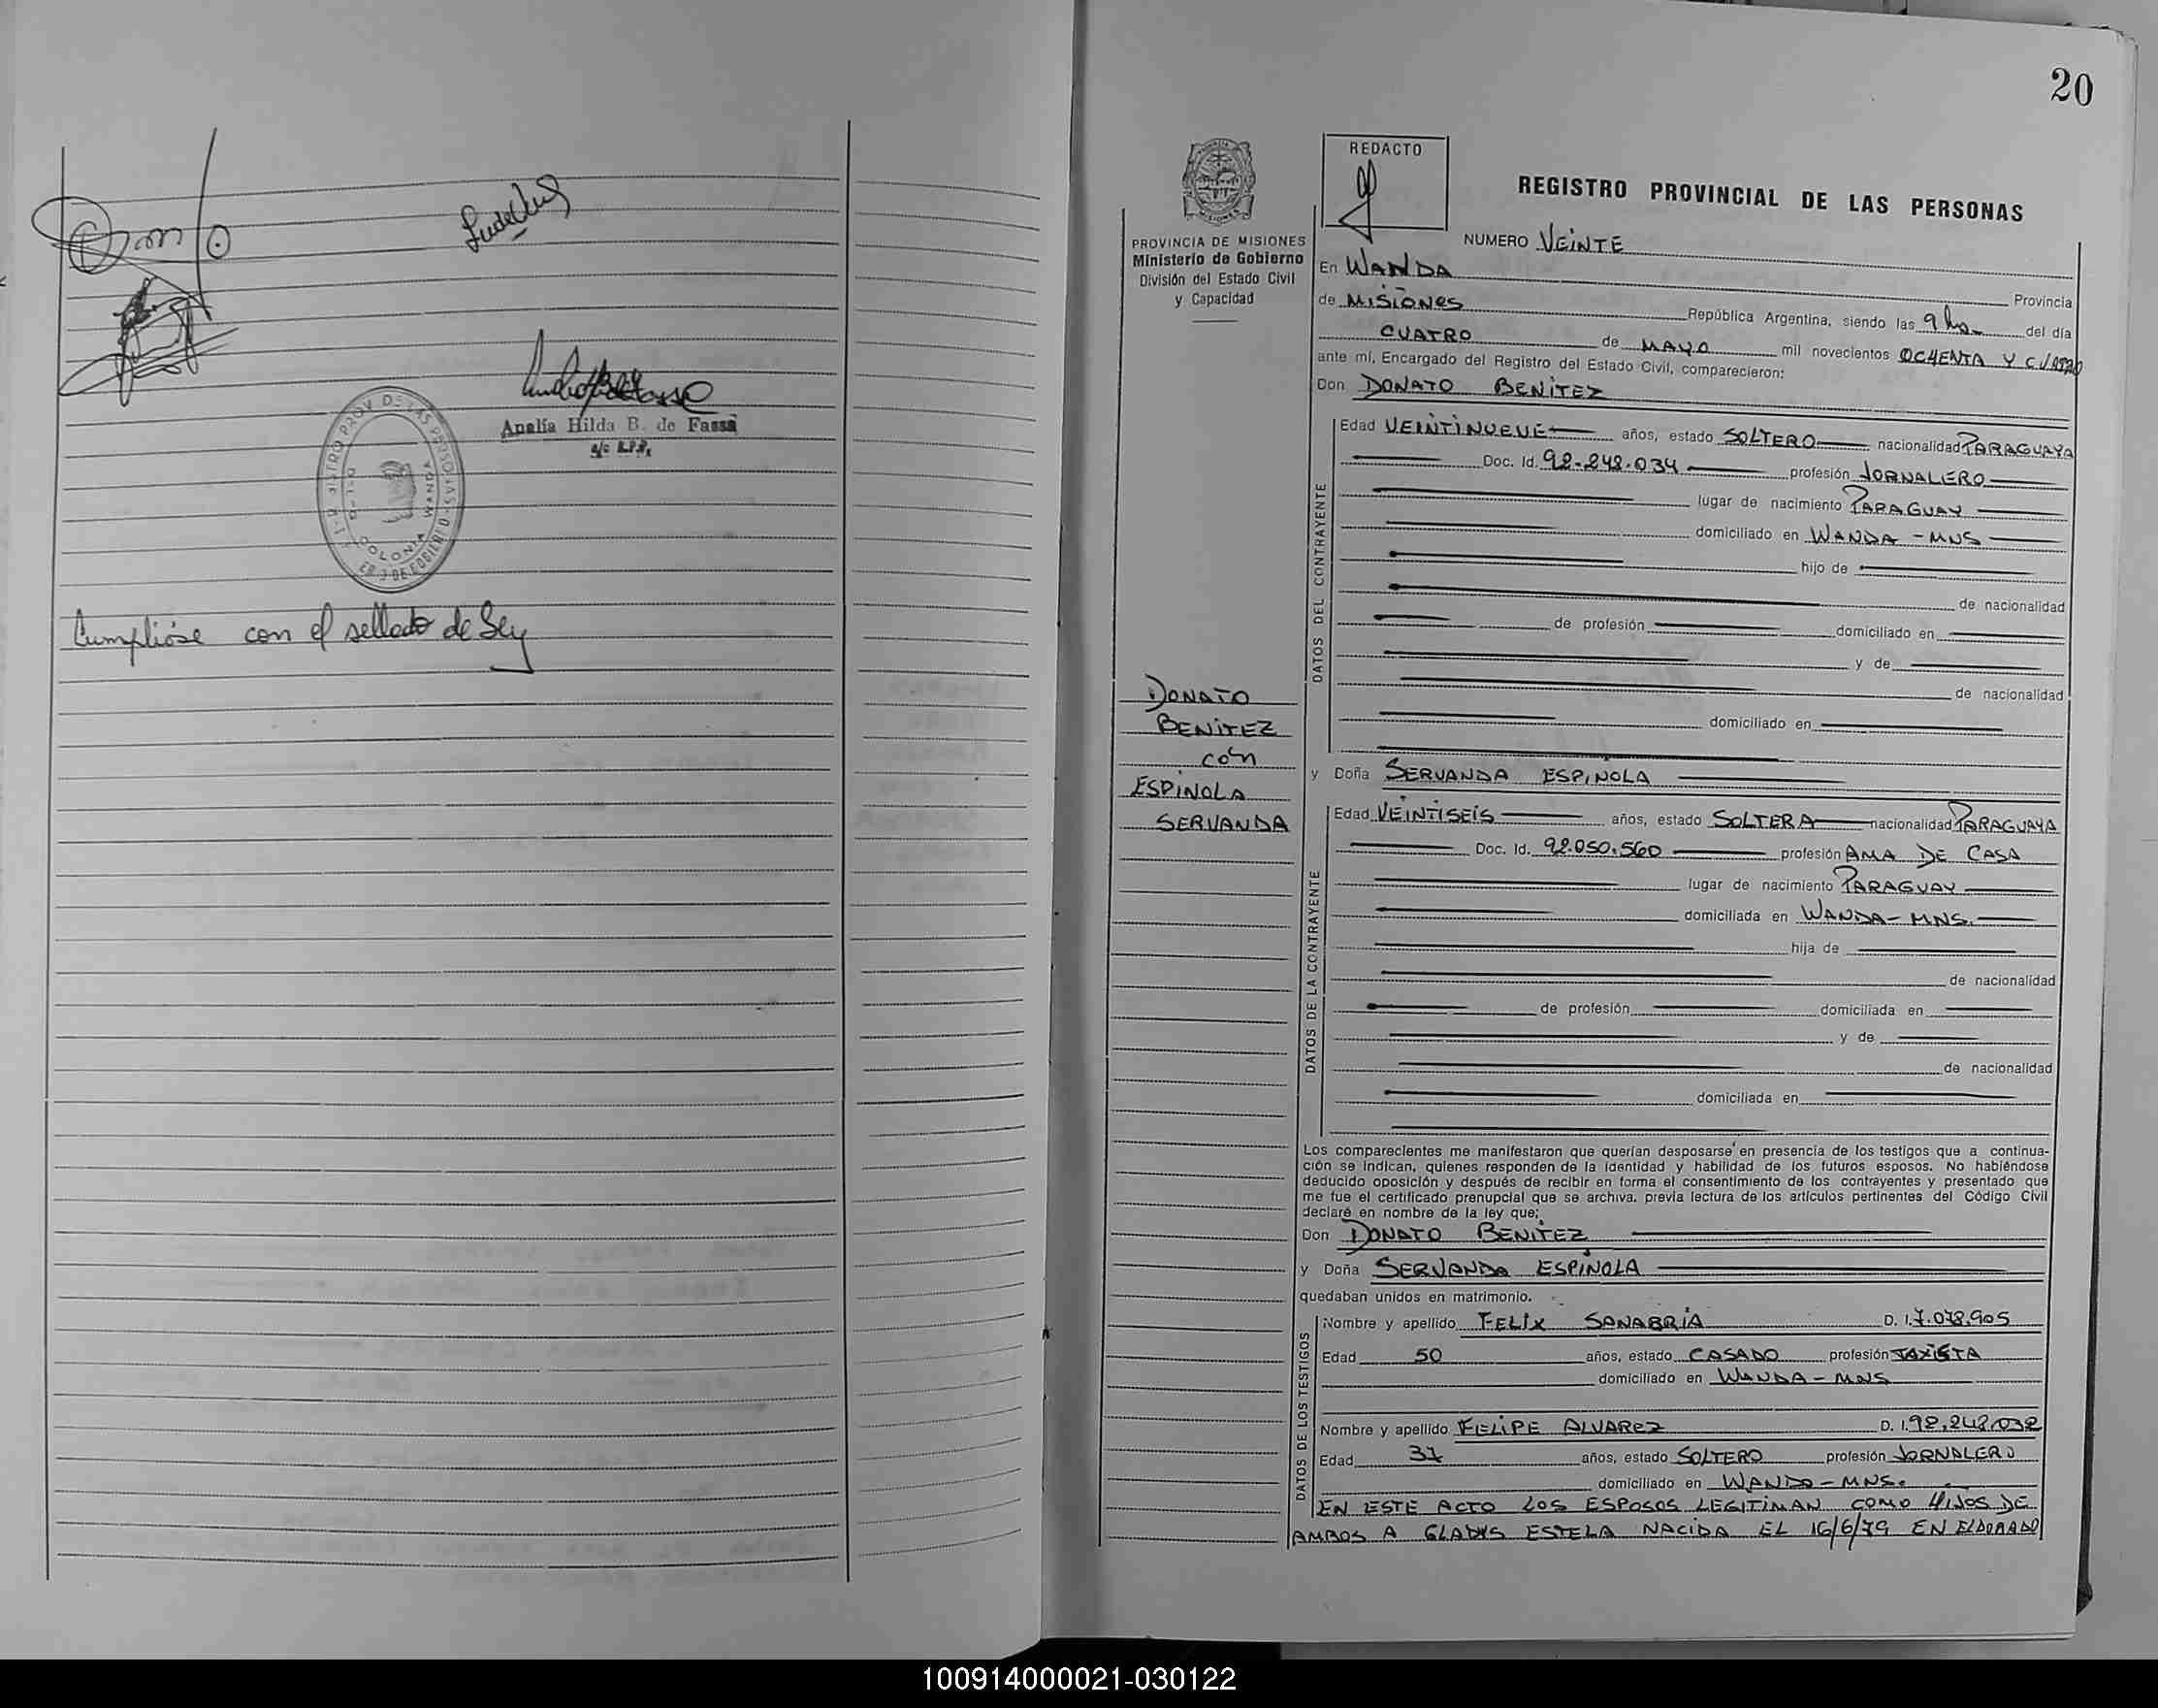 Analía Hilda B. de Fassa
a/c R.P.P.
COLONIA WANDA
Cumplióse con el sellado de Ley
20
REDACTO
REGISTRO PROVINCIAL DE LAS PERSONAS
PROVINCIA DE MISIONES
Ministerio de Gobierno
División del Estado Civil
y Capacidad
NUMERO VEINTE
En WANDA
Provincia
de MISIONES República Argentina, siendo las 9 hs. del día
CUATRO de MAYO mil novecientos OCHENTA Y CUATRO
ante mí, Encargado del Registro del Estado Civil, comparecieron:
Don DONATO BENITEZ
DATOS DEL CONTRAYENTE
Edad VEINTINUEVE años, estado SOLTERO nacionalidad PARAGUAYA
Doc. Id. 92.242.034 profesión JORNALERO
lugar de nacimiento PARAGUAY
domiciliado en WANDA - MNS
hijo de
de nacionalidad
de profesión domiciliado en
y de
de nacionalidad
domiciliado en
DONATO
BENITEZ
con
ESPINOLA
SERVANDA
y Doña SERVANDA ESPINOLA
DATOS DE LA CONTRAYENTE
Edad VEINTISEIS años, estado SOLTERA nacionalidad PARAGUAYA
Doc. Id. 92.050.560 profesión AMA DE CASA
lugar de nacimiento PARAGUAY
domiciliada en WANDA - MNS.
hija de
de nacionalidad
de profesión domiciliada en
y de
de nacionalidad
domiciliada en
Los comparecientes me manifestaron que querían desposarse en presencia de los testigos que a continua-
ción se indican, quienes responden de la identidad y habilidad de los futuros esposos. No habiéndose
deducido oposición y después de recibir en forma el consentimiento de los contrayentes y presentado que
me fue el certificado prenupcial que se archiva, previa lectura de los artículos pertinentes del Código Civil
declaré en nombre de la ley que:
Don DONATO BENITEZ
y Doña SERVANDA ESPINOLA
quedaban unidos en matrimonio.
DATOS DE LOS TESTIGOS
Nombre y apellido FELIX SANABRIA D. I. 7.078.905
Edad 50 años, estado CASADO profesión TAXISTA
domiciliado en WANDA - MNS
Nombre y apellido FELIPE ALVAREZ D. I. 92.242.032
Edad 37 años, estado SOLTERO profesión JORNALERO
domiciliado en WANDA - MNS.
EN ESTE ACTO LOS ESPOSOS LEGITIMAN COMO HIJOS DE
AMBOS A GLADYS ESTELA NACIDA EL 16/6/79 EN ELDORADO
100914000021-030122